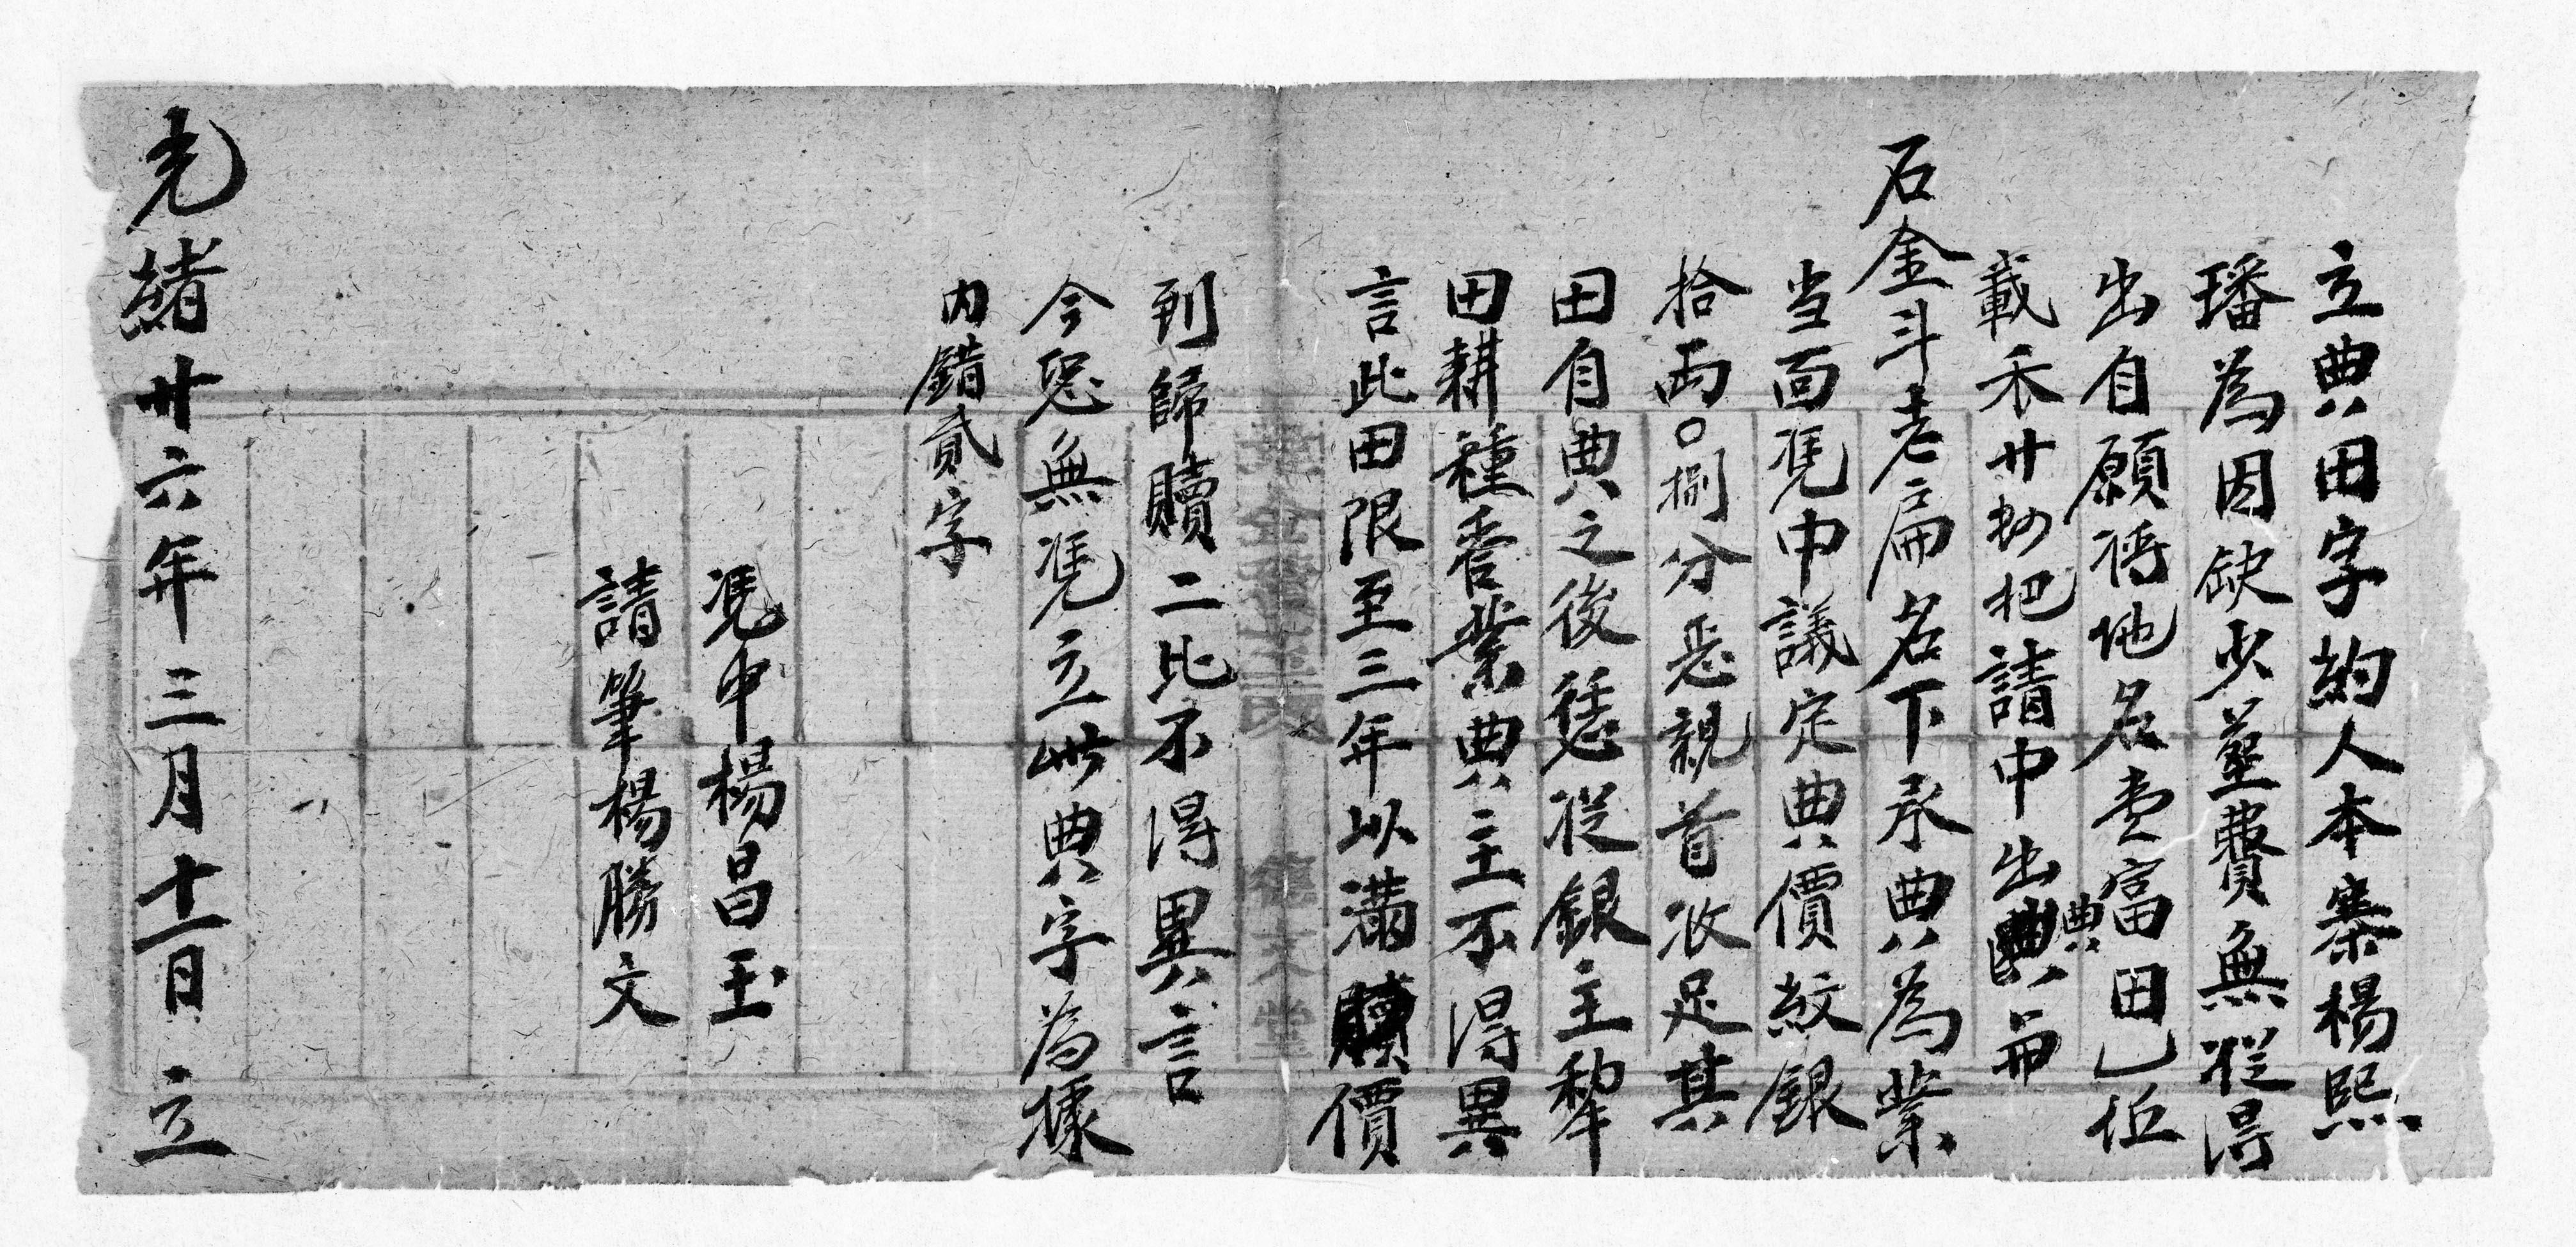 立典田字約人本寨楊熙
璠為因缺少塟費無從得
出自願將地名賣富田已伍
載禾廿把請中出典與
石金斗老扁名下承典為業
当面凭中議定典價紋銀
拾両〇捌分恁親首收足其
田自典之後恁從銀主犂
田耕種管業典主不得異
言此田限至三年以滿贖價
到歸贖二比不得異言
今恐無凭立此典字為據
内錯貳字
凭中楊昌玉
請筆楊勝文
光緒廿六年三月十一日立